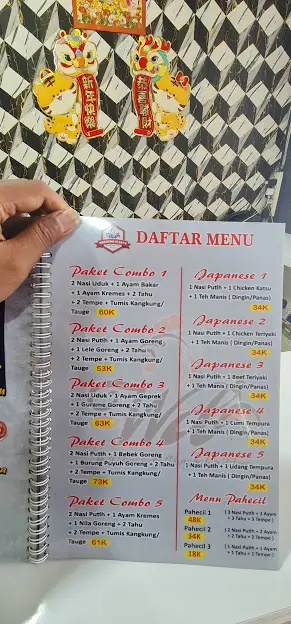 新年快樂
恭喜發財
DAFTAR MENU
Paket Combo 1
2 Nasi Uduk + 1 Ayam Bakar
+ 1 Ayam Kremes + 2 Tahu
+ 2 Tempe + Tumis Kangkung/
Tauge 60K
Paket Combo 2
2 Nasi Putih + 1 Ayam Goreng
+ 1 Lele Goreng + 2 Tahu
+ 2 Tempe + Tumis Kangkung/
Tauge 53K
Paket Combo 3
2 Nasi Uduk + 1 Ayam Geprek
+ 1 Gurame Goreng + 2 Tahu
+ 2 Tempe + Tumis Kangkung/
Tauge 63K
Paket Combo 4
2 Nasi Putih + 1 Bebek Goreng
+ 1 Burung Puyuh Goreng + 2 Tahu
+ 2 Tempe + Tumis Kangkung/
Tauge 73K
Paket Combo 5
2 Nasi Putih + 1 Ayam Kremes
+ 1 Nila Goreng + 2 Tahu
+ 2 Tempe + Tumis Kangkung/
Tauge 61K
Japanese 1
1 Nasi Putih + 1 Chicken Katsu
+ 1 Teh Manis (Dingin/Panas)
34K
Japanese 2
1 Nasi Putih + 1 Chicken Teriyaki
+ 1 Teh Manis ( Dingin/Panas)
34K
Japanese 3
1 Nasi Putih + 1 Beef Teriyaki
+ 1 Teh Manis ( Dingin/Panas)
34K
Japanese 4
1 Nasi Putih + 1 Cumi Tempura
+ 1 Teh Manis ( Dingin/Panas)
34K
Japanese 5
1 Nasi Putih + 1 Udang Tempura
+ 1 Teh Manis ( Dingin/Panas)
34K
Menu Pahecil
Pahecil 1 ( 3 Nasi Putih + 3 Ayam
48K + 3 Tahu + 3 Tempe )
Pahecil 2 ( 2 Nasi Putih + 2 Ayam
34K + 2 Tahu + 2 Tempe )
Pahecil 3 ( 1 Nasi Putih + 1 Ayam
18K + 1 Tahu + 1 Tempe )